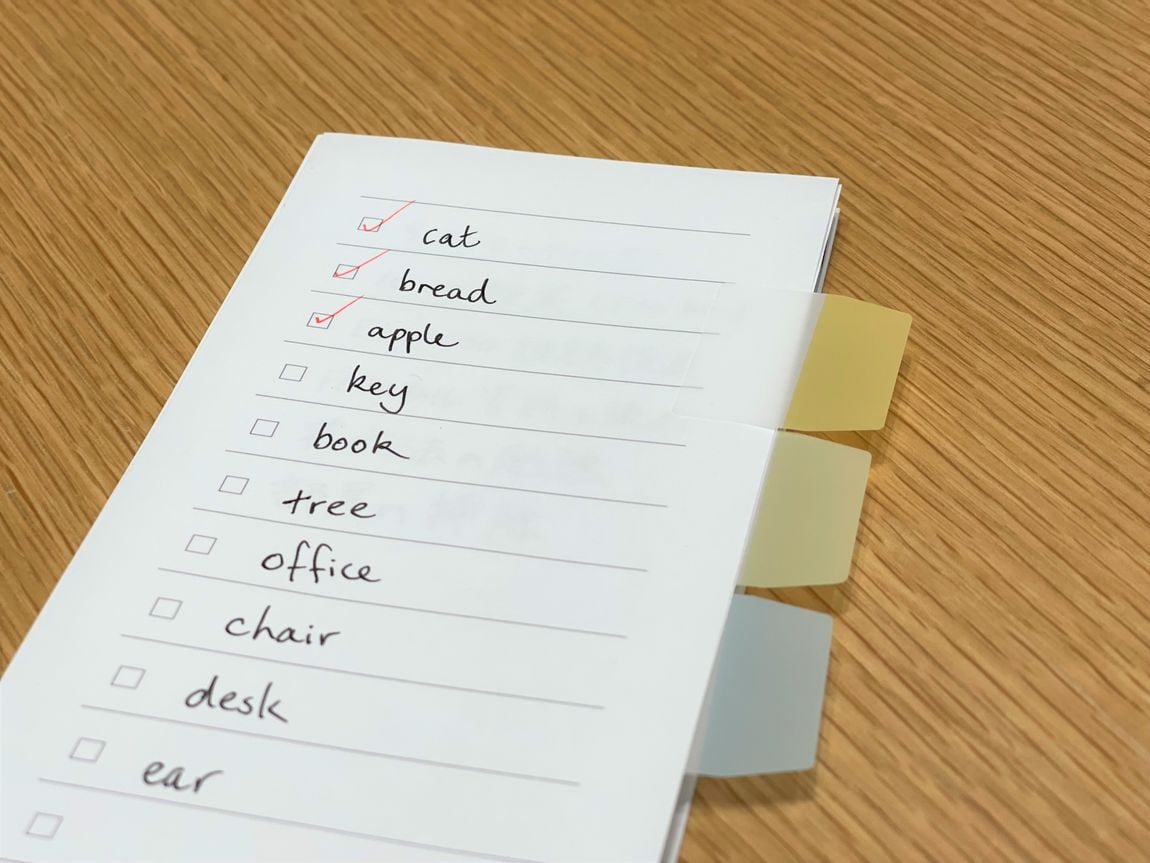 cat
bread
apple
key
book
tree
office
chair
desk
ear